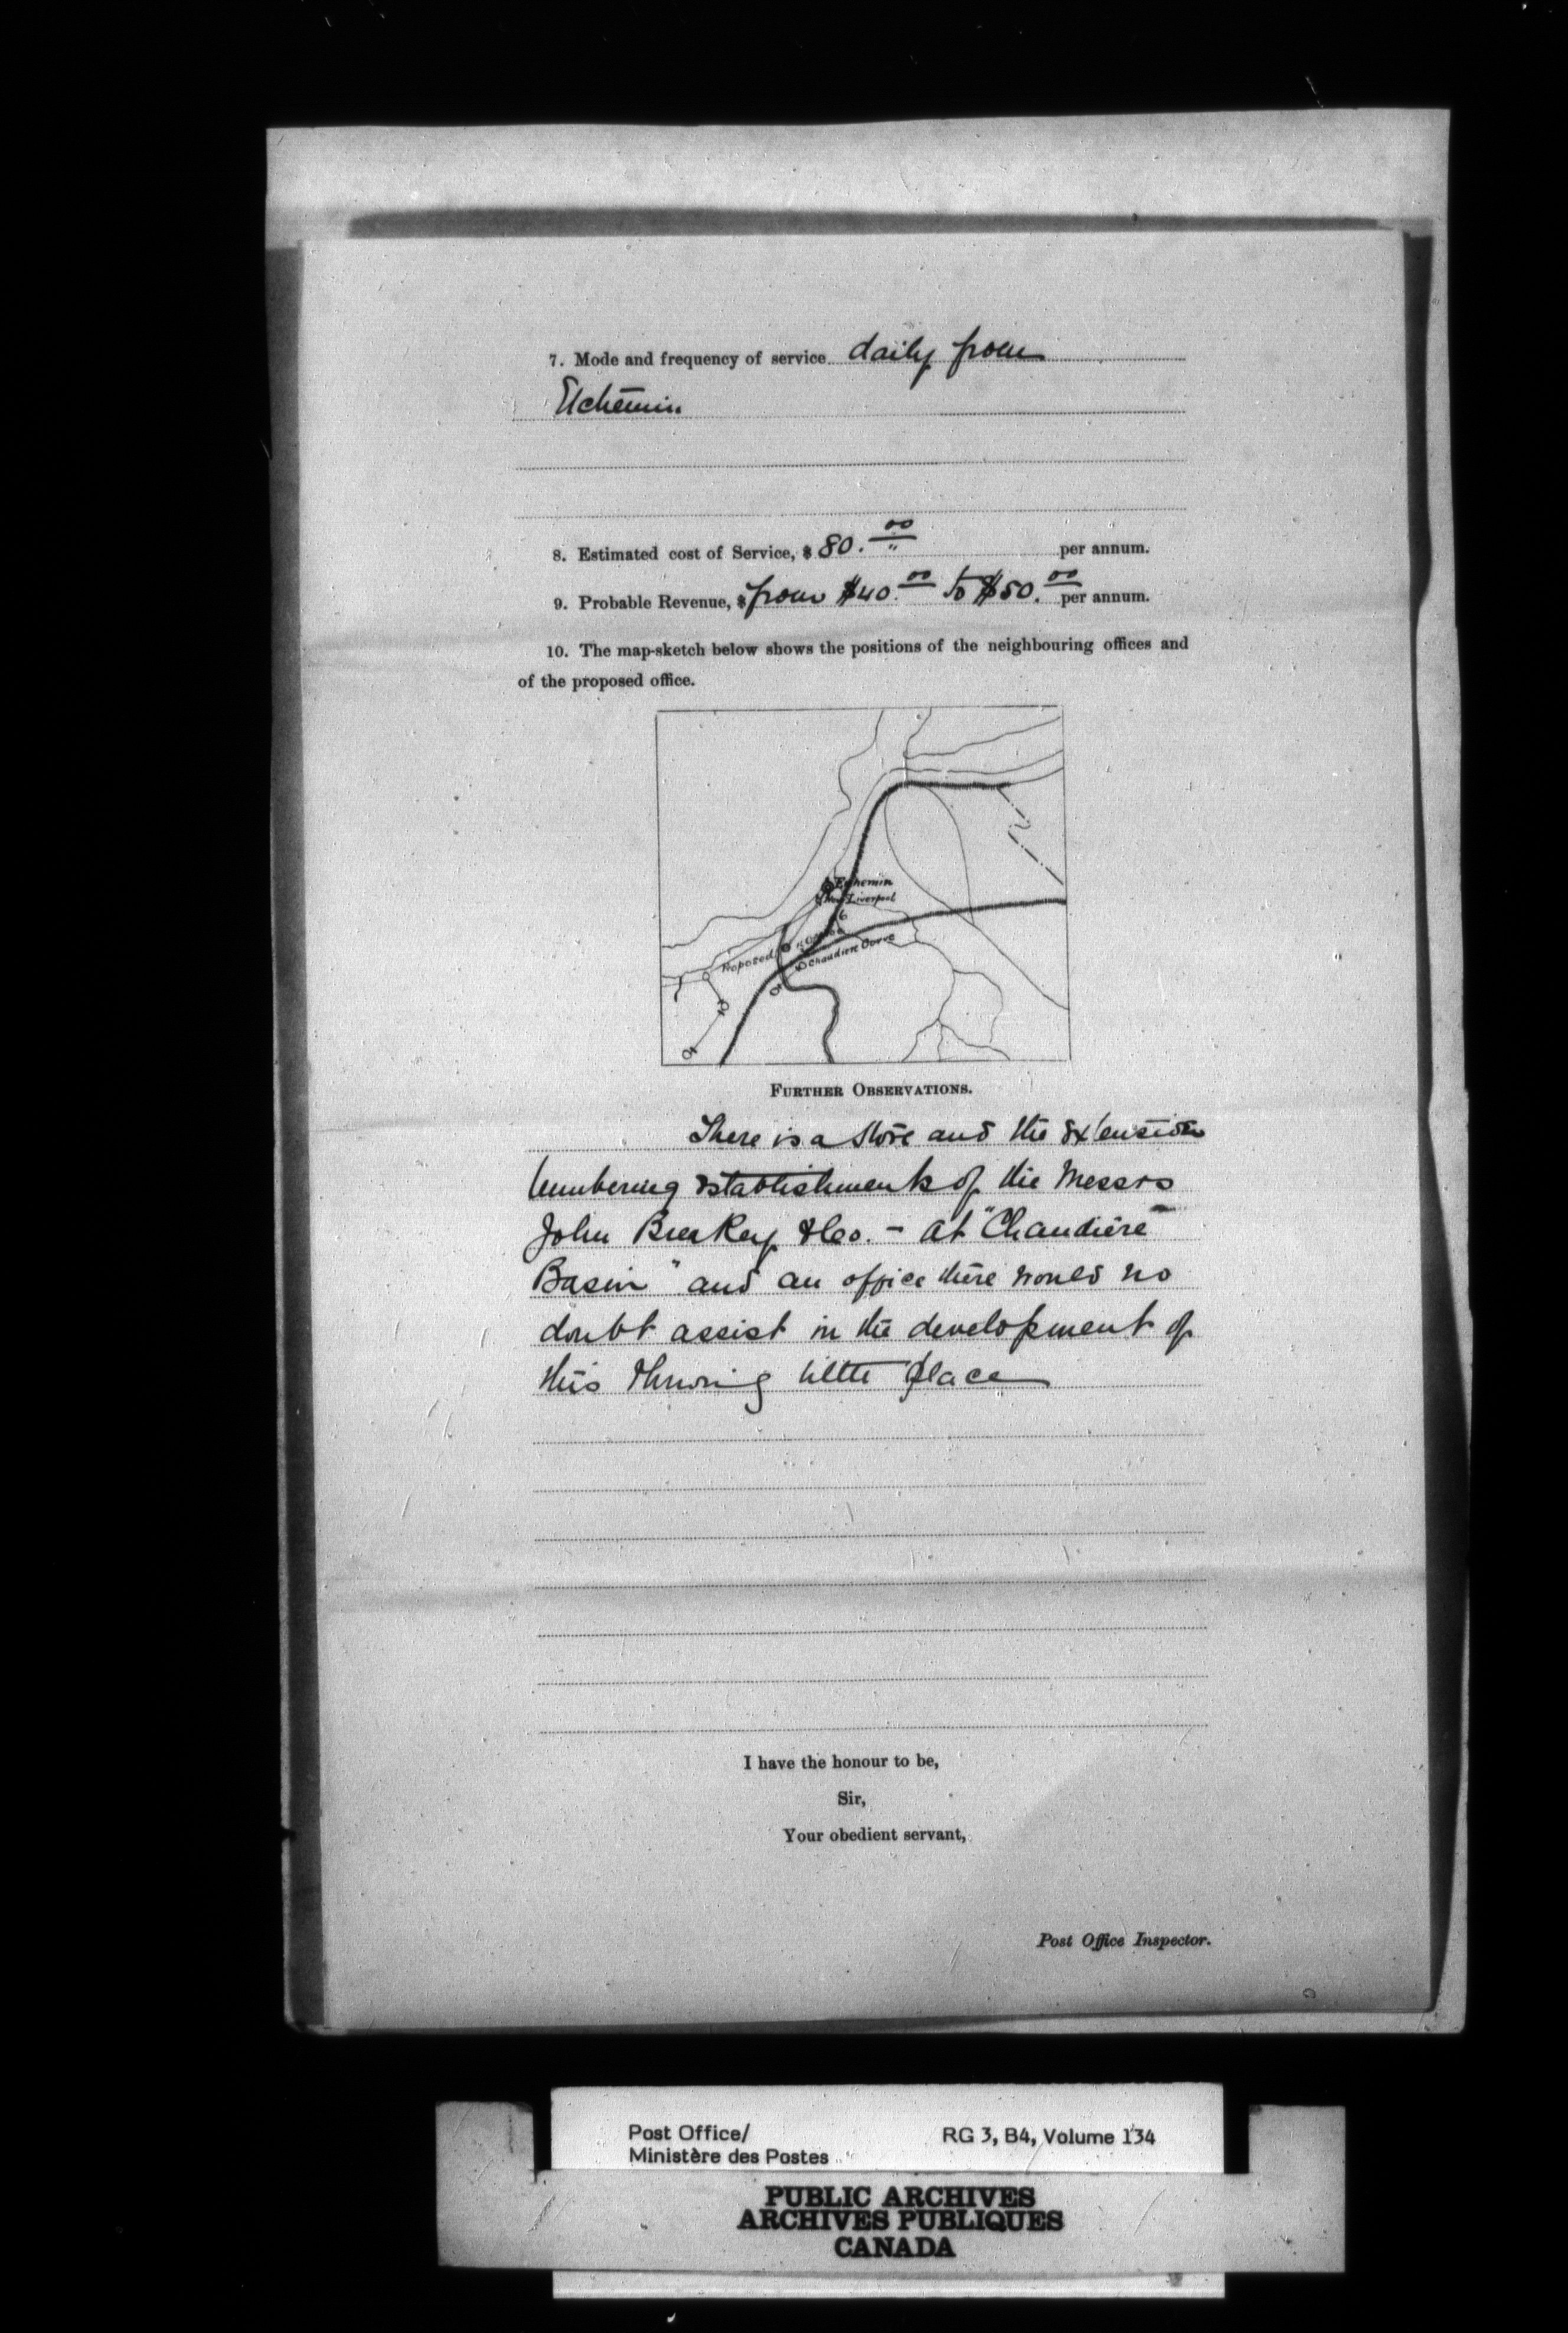 7. Mode and frequency of service daily from
Etchemin
8. Estimated cost of Service, $ 80.00 per annum.
9. Probable Revenue, $ from $40.00 to $50.00 per annum.
10. The map-sketch below shows the positions of the neighbouring offices and
of the proposed office.
Etchemin
Liverpool
Proposed
Chaudiere Curve
FURTHER OBSERVATIONS.
There is a store and the extension
lumbering establishments of the Messrs
John Breakey & Co. - at "Chaudière
Basin" and an office there would no
doubt assist in the development of
this thriving little place
I have the honour to be,
Sir,
Your obedient servant,
Post Office Inspector.
Post Office/
Ministère des Postes
RG 3, B4, Volume 134
PUBLIC ARCHIVES
ARCHIVES PUBLIQUES
CANADA